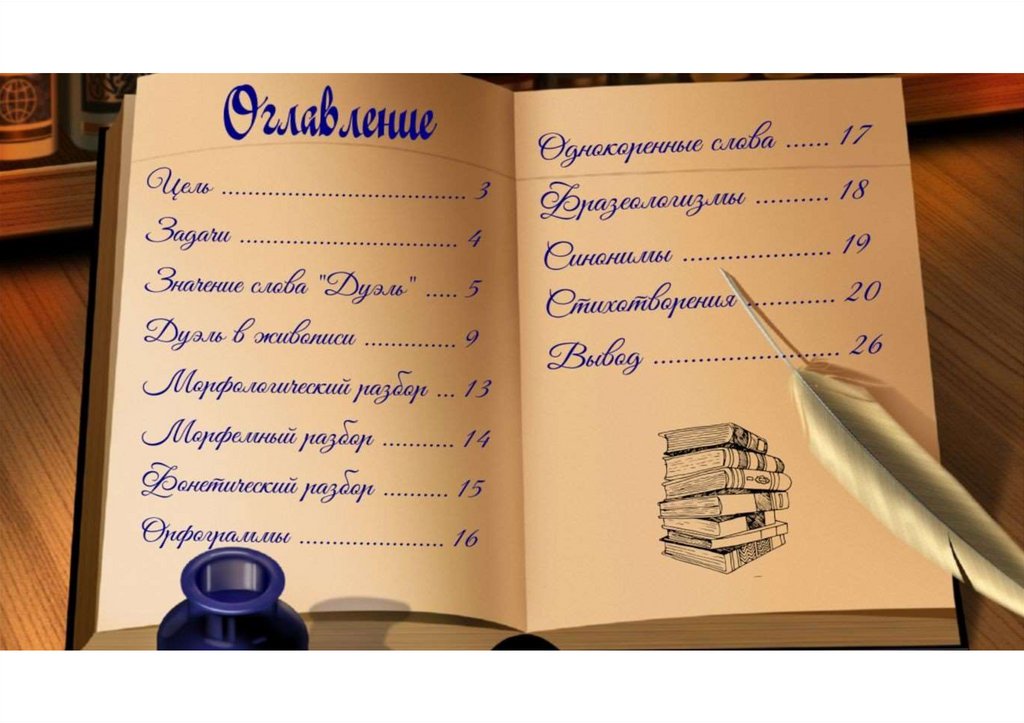 Оглавление
Цель ..................................... 3
Задачи ................................. 4
Значение слова "Дуэль" ..... 5
Дуэль в живописи .............. 9
Морфологический разбор ... 13
Морфемный разбор ........... 14
Фонетический разбор .......... 15
Орфограммы ...................... 16
Однокоренные слова ...... 17
Фразеологизмы ........... 18
Синонимы ....................... 19
Стихотворения ............. 20
Вывод ............................. 26